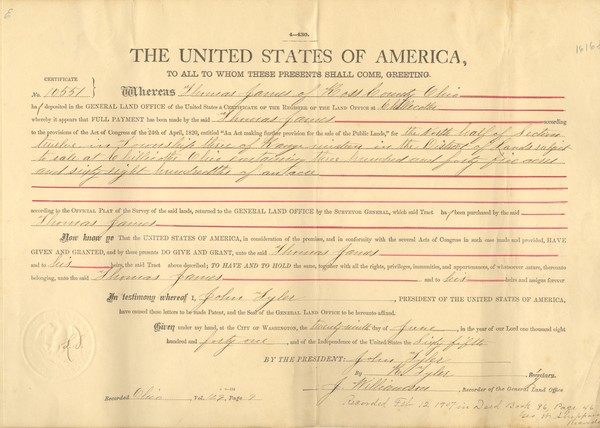 4—430.
THE UNITED STATES OF AMERICA,
TO ALL TO WHOM THESE PRESENTS SHALL COME, GREETING.
CERTIFICATE
No. 10551 } Whereas Thomas James of Ross County Ohio
ha deposited in the GENERAL LAND OFFICE of the United States a CERTIFICATE OF THE REGISTER OF THE LAND OFFICE at Chillicothe
whereby it appears that FULL PAYMENT has been made by the said Thomas James according
to the provisions of the Act of Congress of the 24th of April, 1820, entitled "An Act making further provision for the sale of the Public Lands," for the North half of Section
twelve in Township three of Range nineteen in the District of Lands subject
to sale at Chillicothe Ohio containing three hundred and forty five acres
and sixty eight hundredths of an acre
according to the OFFICIAL PLAT of the Survey of the said lands, returned to the GENERAL LAND OFFICE by the SURVEYOR GENERAL, which said Tract ha been purchased by the said
Thomas James
Now know ye That the UNITED STATES OF AMERICA, in consideration of the premises, and in conformity with the several Acts of Congress in such case made and provided, HAVE
GIVEN AND GRANTED, and by these presents DO GIVE AND GRANT, unto the said Thomas James
and to his heirs, the said Tract above described; TO HAVE AND TO HOLD the same, together with all the rights, privileges, immunities, and appurtenances, of whatsoever nature, thereunto
belonging, unto the said Thomas James and to his heirs and assigns forever
In testimony whereof I, John Tyler, PRESIDENT OF THE UNITED STATES OF AMERICA,
have caused these letters to be made Patent, and the Seal of the GENERAL LAND OFFICE to be hereunto affixed.
Given under my hand, at the CITY OF WASHINGTON, the twenty ninth day of June, in the year of our Lord one thousand eight
hundred and forty one, and of the Independence of the United States the Sixty fifth
BY THE PRESIDENT: John Tyler
By R. Tyler, Secretary.
J. Williamson, Recorder of the General Land Office
Recorded, Ohio, Vol. Page
Recorded Feb. 12, 1907 in Deed Book Page